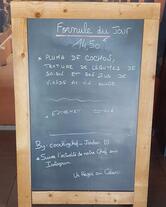 Formule du Jour
14.50
* PLUMA DE COCHON,
TEXTURE DE LÉGUMES DE
SAISON ET SON JUS DE
VIANDE AU VIN ROUGE
By: cookingchef_Jordan
* Suivez l'actualité de notre Chef sur
Instagram
Un Régal au Cœur